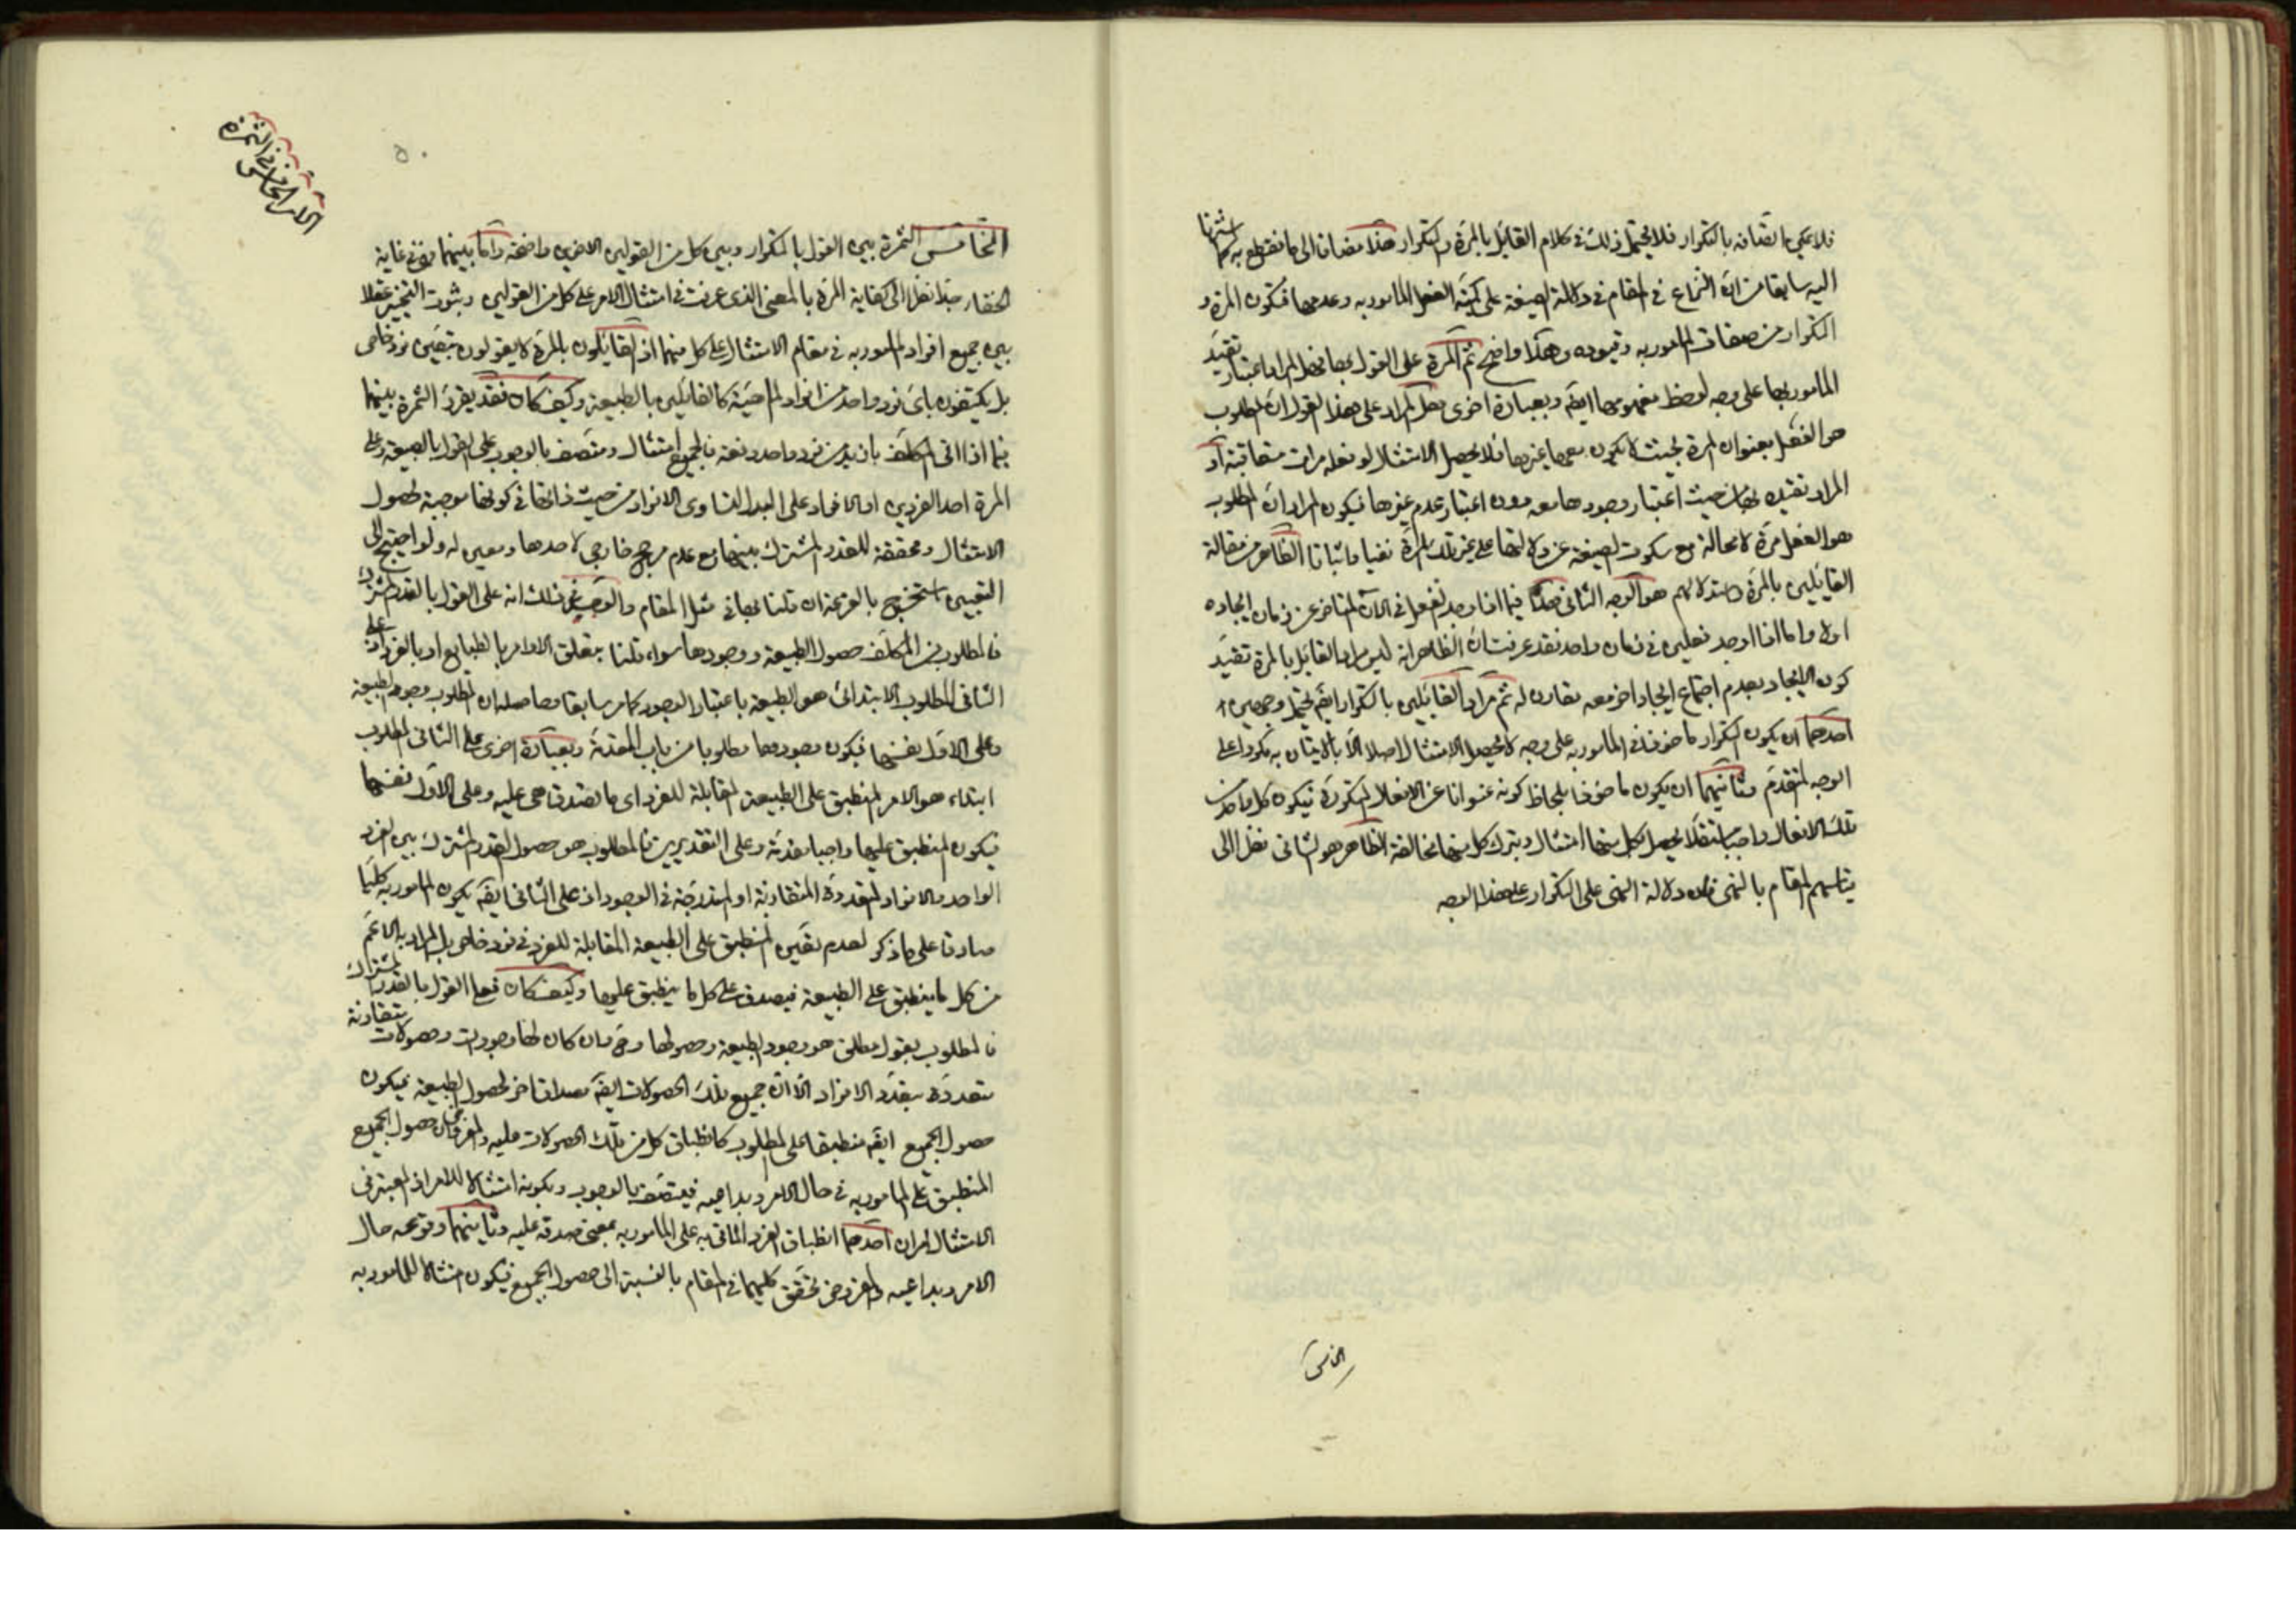 فلا يمكن اتصافه بالتكرار فلا يحتمل ذلك في كلام القائل بالمرة والتكرار هذا مضافا الى ما نقطع به كما اشرنا
اليه سابقا من ان النزاع في المقام في دلالة الصيغة على كمية الفعل المأمور به وعدمها فتكون المرة و
التكرار من صفات المأمور به وقيوده وهذا واضح ثم المرة على القول بها فهل المراد اعتبار تقييد
المأمور بها على وجه لوحظ مفهومها ايضا وبعبارة اخرى هل المراد على هذا القول ان المطلوب
هو الفعل بعنوان المرة بحيث لا يكون معها غيرها فلا يحصل الامتثال لو فعله مرات متعاقبة او
المراد تقيده بها من حيث اعتبار وجودها معه دون اعتبار عدم غيرها فيكون المراد ان المطلوب
هو الفعل مرة لا محالة مع سكوت الصيغة عن دلالتها على غير تلك المرة نفيا واثباتا الظاهر من مقالة
القائلين بالمرة واستدلالهم هو الوجه الثاني هذا فيما اذا وجد الفعل في الآن المتأخر عن زمان ايجاده
اولا واما اذا اوجد فعلين في زمان واحد فقد عرفت ان الظاهر انه ليس مراد القائل بالمرة تقييد
كون الايجاد بعدم اجتماع ايجاد اخر معه مقارن له ثم مراد القائلين بالتكرار ايضا يحتمل وجهين
احدهما ان يكون التكرار ماخوذا في المأمور به على وجه لا يحصل الامتثال اصلا الا بالاتيان به مكررا على
الوجه المتقدم وثانيهما ان يكون ماخوذا بلحاظ كونه عنوانا عن الافعال المتكررة فيكون كل واحد من
تلك الافعال واجبا مستقلا يحصل بكل منها امتثال وبترك كل منها مخالفة الظاهر هو الثاني نظرا الى
قياسهم المقام بالنهي فان دلالة النهي على التكرار على هذا الوجه
الخامس
الامر الخامس في الثمرة
٥٠
الخامس الثمرة بين القول بالتكرار وبين كل من القولين الاخرين واضحة واما بينهما فهي في غاية
الخفاء جدا نظرا الى كفاية المرة بالمعنى الذي عرفت في امتثال الامر على كل من القولين وثبوت التخيير عقلا
بين جميع افراد المأمور به في مقام الامتثال على كل منهما اذ القائلون بالمرة لا يقولون بتعين فرد خاص
بل يكتفون باى فرد واحد من افراد الماهية كالقائلين بالطبيعة وكيف كان فقد يقرر الثمرة بينهما
فيما اذا اتى المكلف بازيد من فرد واحد دفعة فالجميع امتثال ومتصف بالوجوب على القول بالطبيعة وعلى
المرة احد الفردين او الافراد على البدل لتساوى الافراد من حيث ذاتها في كونها موجبة لحصول
الامتثال ومحققة للقدر المشترك بينها مع عدم مرجح خارجي لاحدها ومعين له ولو احتيج الى
التعيين استخرج بالقرعة ان قلنا بها في مثل المقام والوجه في ذلك انه على القول بالقدر المشترك
فالمطلوب من المكلف حصول الطبيعة ووجودها سواء قلنا بتعلق الاوامر بالطبايع او بالفرد اذ على
الثاني المطلوب الابتدائي هو الطبيعة باعتبار الوجود كما مر سابقا وحاصله ان المطلوب وجود الطبيعة
وعلى الاول نفسها فيكون وجودها مطلوبا من باب المقدمة وبعبارة اخرى على الثاني المطلوب
ابتداء هو الامر المنطبق على الطبيعة المقابلة للفرد اى ما تصدق هي عليه وعلى الاول نفسها
فيكون المنطبق عليها واجبا مقدمة وعلى التقديرين فالمطلوب هو حصول القدر المشترك بين الفرد
الواحد والافراد المتعددة المتقارنة او المتدرجة في الوجود اذ على الثاني ايضا يكون المأمور به كليا
صادقا على ما ذكر لعدم تعين المنطبق على الطبيعة المقابلة للفرد في فرد خاص بل المراد به الاعم
من كل ما ينطبق على الطبيعة فيصدق على كل ما ينطبق عليها وكيف كان فعلى القول بالقدر المشترك
فالمطلوب بقول مطلق هو وجود الطبيعة وحصولها وح فان كان لها وجودات وحصولات متقارنة
متعددة بتعدد الافراد الا ان جميع تلك الحصولات ايضا مصداق اخر لحصول الطبيعة فيكون
حصول الجميع ايضا منطبقا على المطلوب كانطباق كل من تلك الحصولات عليه والمفروض ان حصول الجميع
المنطبق على المأمور به في حال الامر وبداعيه فيتصف بالوجوب وبكونه امتثالا للامر اذ المعتبر في
الامتثال امران احدهما انطباق الفرد المأتى به على المأمور به بمعنى صدقه عليه وثانيهما وقوعه حال
الامر وبداعيه والمفروض تحقق كليهما في المقام بالنسبة الى حصول الجميع فيكون امتثالا للمأمور به